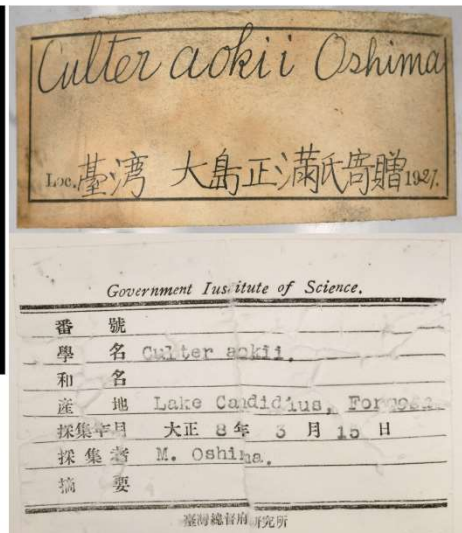 Culter aokii Oshima
Loc. 臺湾 大島正満氏寄贈 1927.
Government Institute of Science.
番 號
學 名 Culter aokii.
和 名
産 地 Lake Candidius, Formosa
採集年月 大正 8年 3 月 15 日
採集者 M. Oshima.
摘 要
臺灣總督府研究所